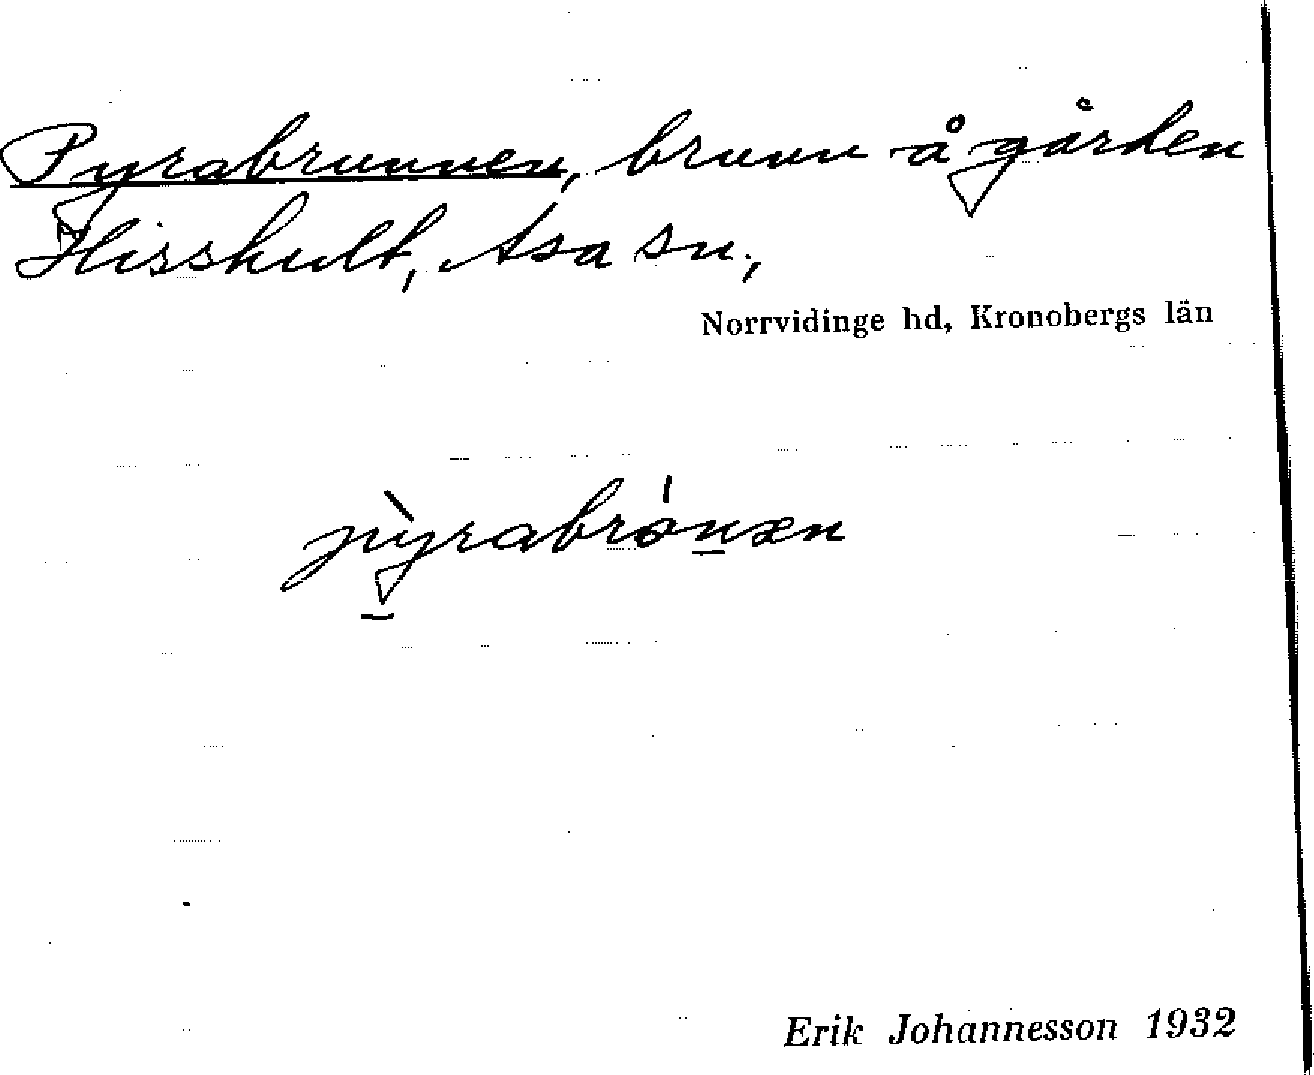 Pyrabrunnen, brunn å gården
Flisskult, Asa sn.,
Norrvidinge hd, Kronobergs län
pỳrabrónæn
Erik Johannesson 1932